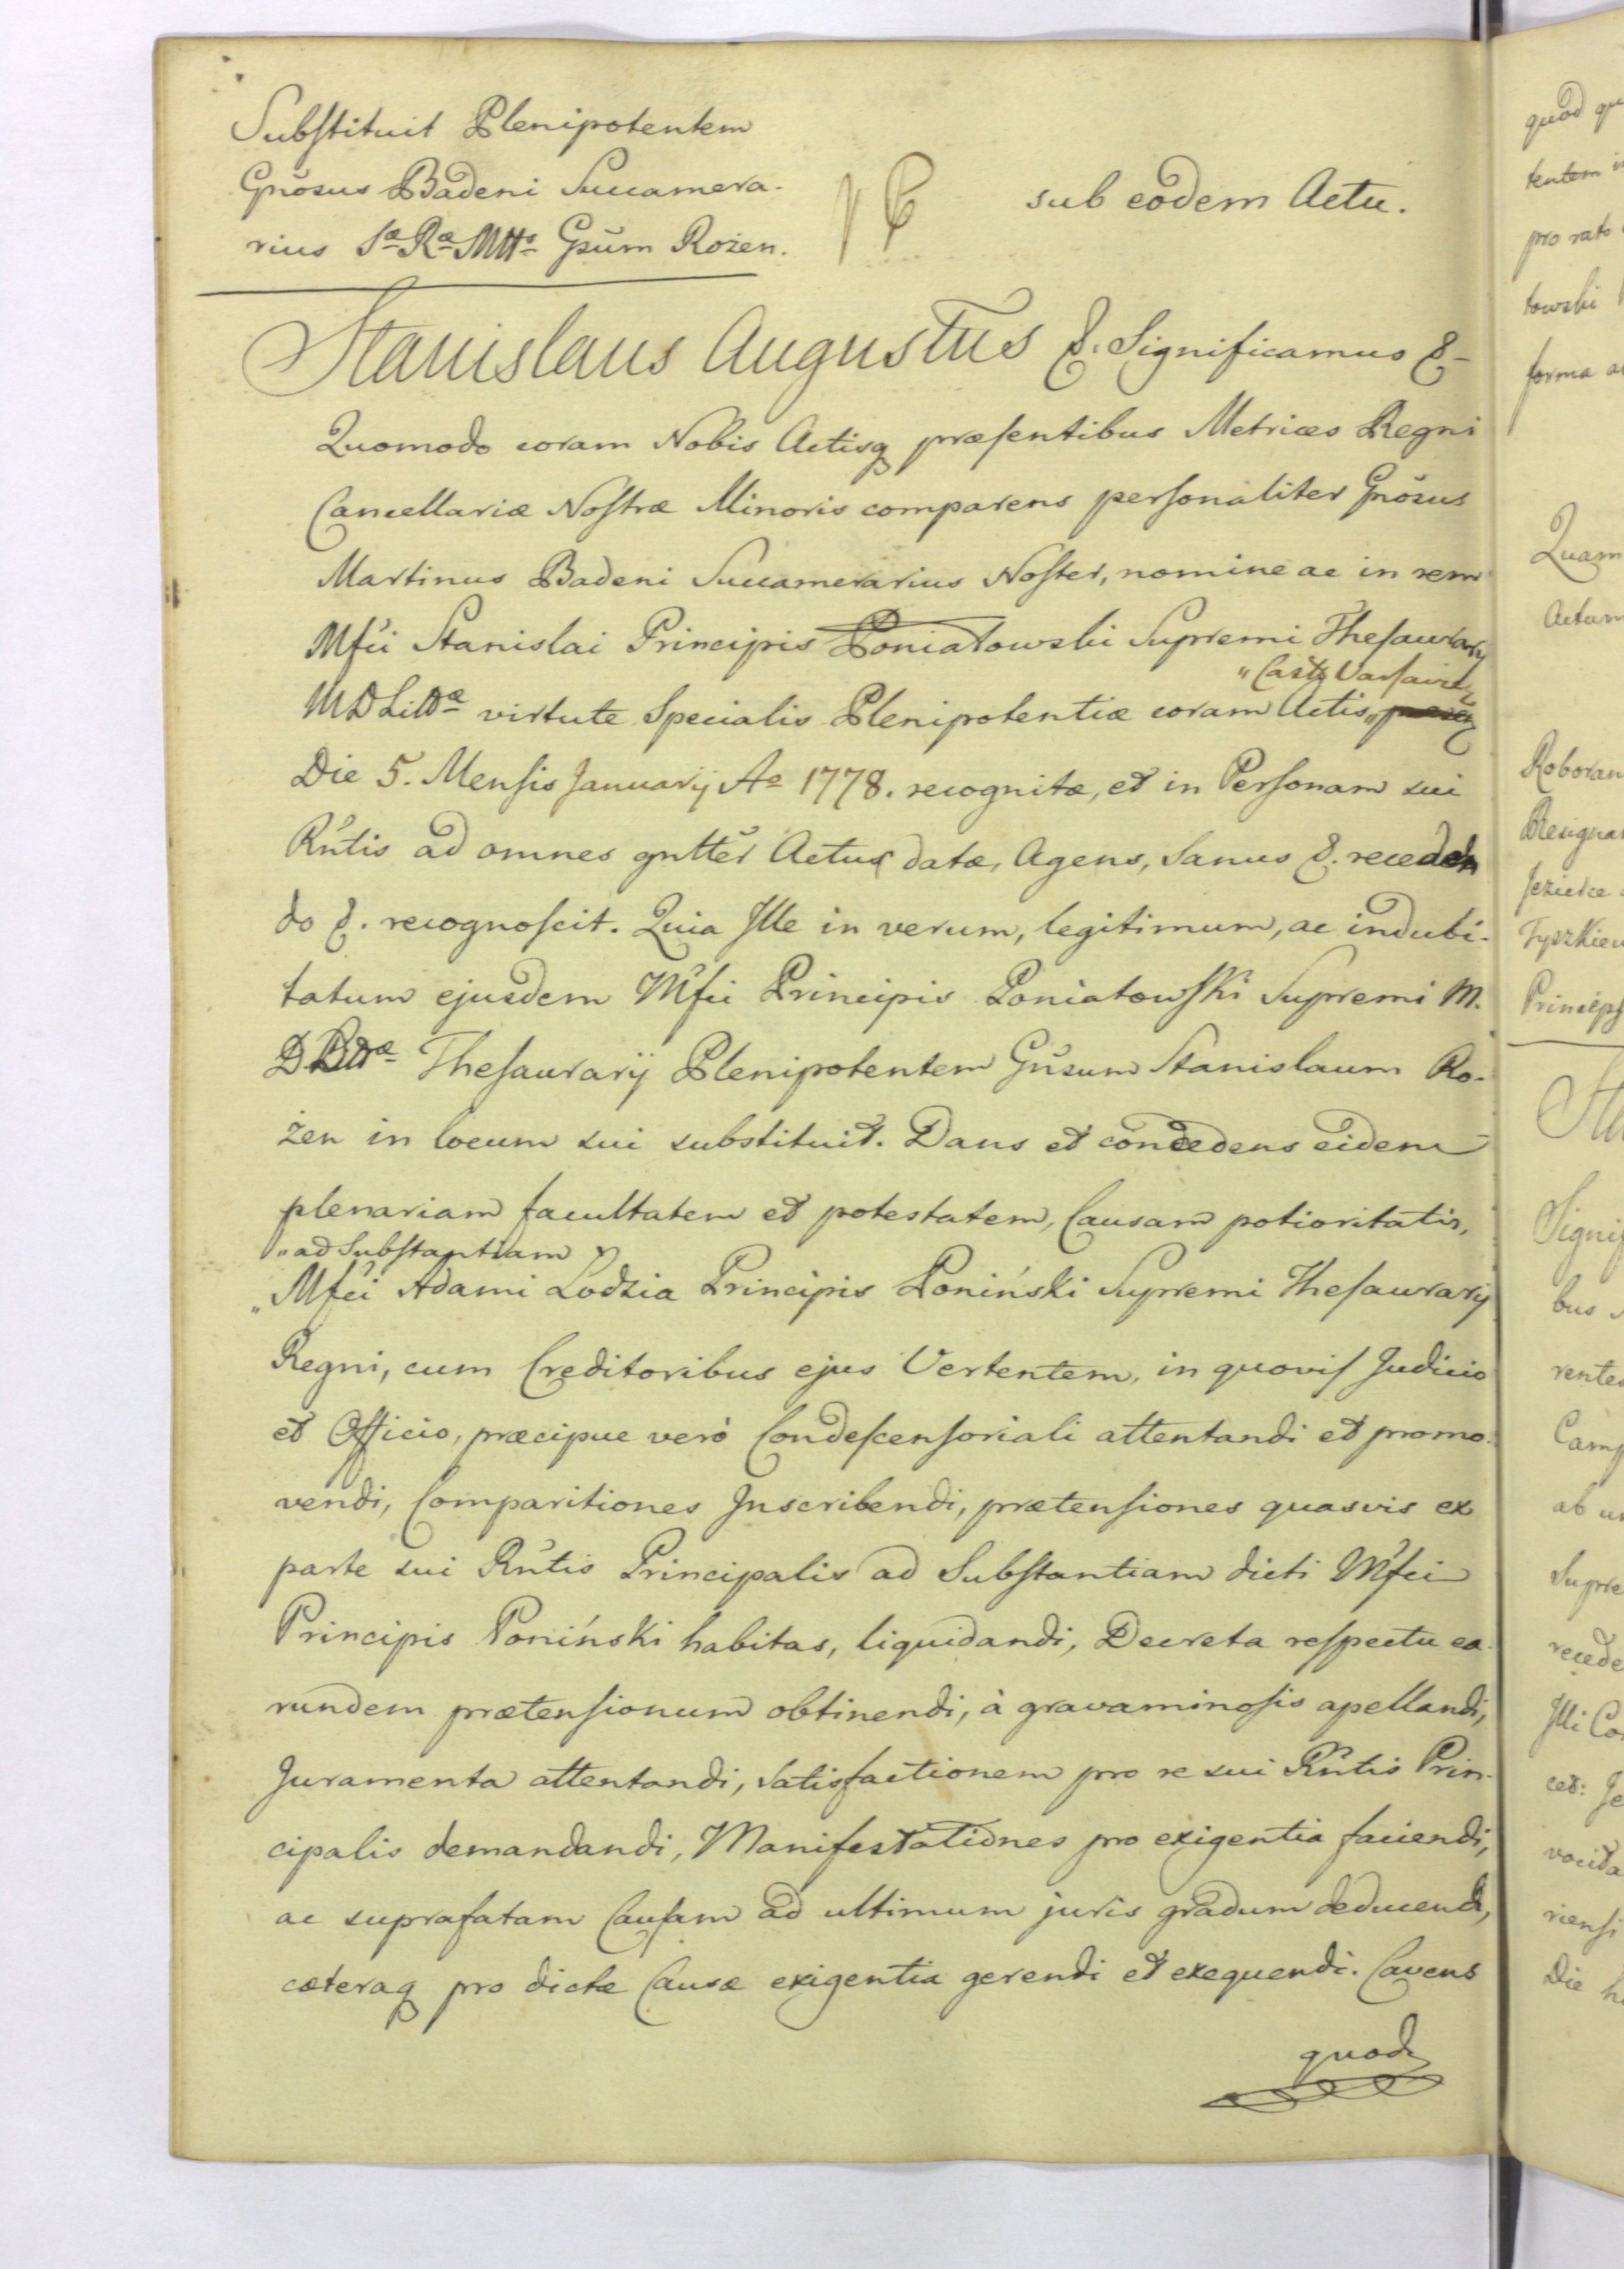 Substituit Plenipotentem
Gnosus Badeni Succamera-
rius Sæ Ræ Mttis Gsum Rożen.
sub eodem Actu.
Stanislaus Augustus &. Significamus &-
Quomodo coram Nobis Actisq præsentibus Metrices Regni
Cancellariæ Nostræ Minoris comparens personaliter Gnosus
Martinus Badeni Succamerarius Noster, nomine ac in rem
Mfci Stanislai Principis Poniatowski Supremi Thesaurarij
"Castr Varsavien
MDLittæ virtute Specialis Plenipotentiæ coram Actis"
Die 5. Mensis Januarij Ao 1778. recognitæ, et in Personam sui
Rntis ad omnes gntter Actus datæ, Agens, Sanus &. receden
do &. recognoscit. Quia Ille in verum, legitimum, ac indubi-
tatum ejusdem Mfci Principis Poniatowski Supremi M.
D Littæ Thesaurarij Plenipotentem Gnsum Stanislaum Ro-
żen in locum sui substituit. Dans et concedens eidem
plenariam facultatem et potestatem, Causam potioritatis,
"ad Substantiam
"Mfci Adami Lodzia Principis Poniński Supremi Thesaurarij
Regni, cum Creditoribus ejus Vertentem, in quovis Judicio
et Officio, præcipue verò Condescensoriali attentandi et promo-
vendi, Comparitiones Inscribendi, prætensiones quasvis ex
parte sui Rntis Principalis ad Substantiam dicti Mfci
Principis Poniński habitas, liquidandi, Decreta respectu ea-
rundem prætensionum obtinendi, à gravaminosis apellandi,
Juramenta attentandi, satisfactionem pro re sui Rntis Prin-
cipalis demandandi, Manifestationes pro exigentia faciendi,
ac suprafatam Causam ad ultimum juris gradum deducendi,
cæteraq pro dictæ Causæ exigentia gerendi et exequendi. Cavens
quod
quod
pro rato
towski
forma
Quam
Actum
Roboran
Resigna
Tyszkiew
Princeps
Sta
Signif
bus
rentes
Comp
ab
Supre
recede
Illi Co
riensi
Die